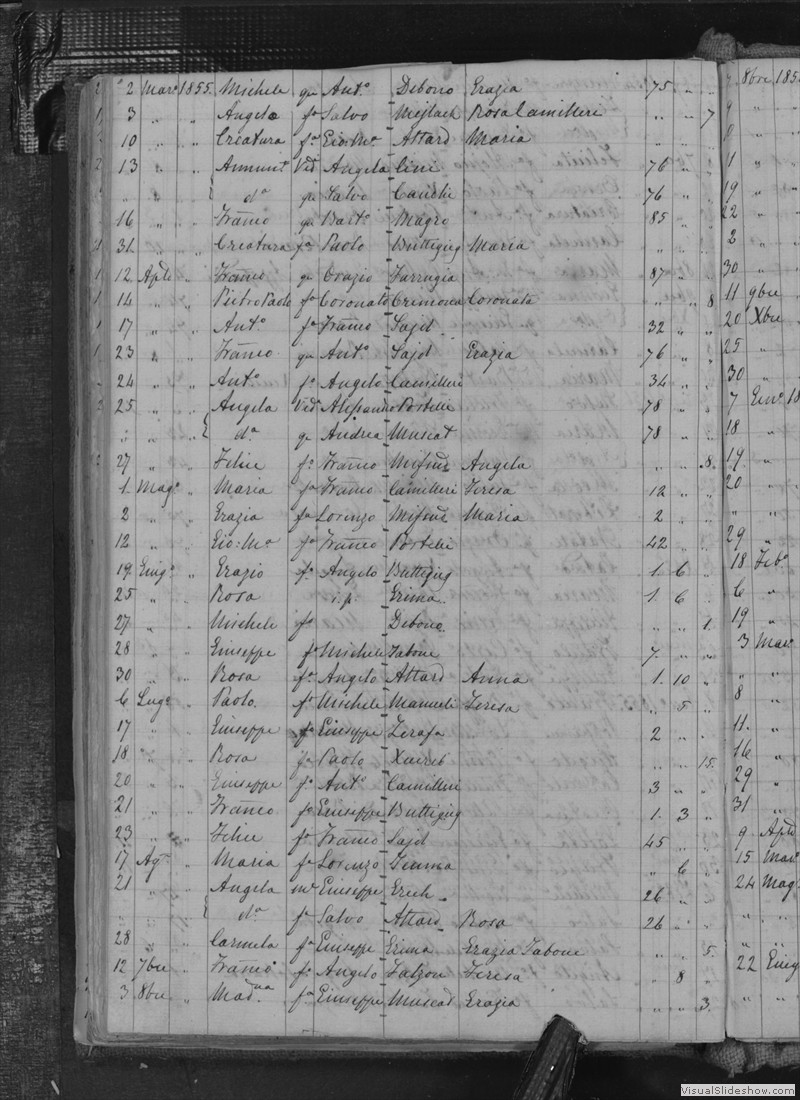 2 Mar: 1855. Michele qm Ant.o Debono Grazia 75 " "
3 " " Angela fa Salvo Mejlach Rosa Camilleri " " 7
10 " " Creatura fa Gio:Ma Attard Maria
13 " " Annunta Vid Angelo Cini 76 " "
" " " da qm Salvo Cauchi 76 " "
16 " " Franco qm Bart.o Magro 85 " "
31 " " Creatura fa Paolo Buttigieg Maria " "
12 Aple " Franco qm Orazio Farrugia 87 " "
14 " " Pietro Paolo fo Coronato Cremona Coronata " " 8
17 " " Ant.o fo Franco Sajd. 32 " "
23 " " Franco qm Ant.o Sajd Grazia 76 " "
24 " " Ant.o fo Angelo Camilleri 34 " "
25 " " Angela Vida Alessandro Portelli 78 " "
" " " da q Andrea Muscat 78 " "
27 " " Felice fo Franco Mifsud Angela " " 8.
1. Mago " Maria fa Franco Camilleri Teresa 12 " "
2 " " Grazia fa Lorenzo Mifsud Maria 2 " "
12 " " Gio:Ma fo Franco Portelli 42 " "
19 Giugo " Grazio fo Angelo Buttigieg 1. 6 "
25 " " Rosa i.p. Grima. 1. 6 "
27 " " Michele fo Debono. " " 1.
28 " " Giuseppe fo Michele Tabone 7. " "
30 " " Rosa fa Angelo Attard Anna 1. 10 "
6 Lugo " Paolo. fo Michele Manueli Teresa " 5 "
17 " " Giuseppe fo Giuseppe Zerafa 2 " "
18 " " Rosa fa Paolo Xuereb " " 15.
20 " " Giuseppe fo Ant.o Camilleri 3 " "
21 " " Franco fo Giuseppe Buttigieg 1. 3 "
23 " " Felice fo Franco Sajd 45 " "
17 Ago " Maria fa Lorenzo Gemma " 6 "
21 " " Angela me Giuseppe Grech. 26 " "
" " " da fa Salvo Attard Rosa 26 " "
28 " " Carmela fa Giuseppe Grima Grazia Tabone " " 5.
12 7bre " Franco fo Angelo Falzon Teresa " 8 "
3 8bre " Madna fa Giuseppe Muscat Grazia " " 3.
8bre 185
9 "
1 "
19 "
22 "
2 "
30 "
11 9bre
20 Xbre
25 "
30 "
7 Gen: 18
18 "
19. "
20 "
" "
29 "
18 Feb:
6 "
19 "
3 Mar:
" "
8 "
11. "
16 "
29 "
31 "
9 Aple
15 Mar:
24 Mag
" "
" "
22 Giug
" "
VisualSlideshow.com